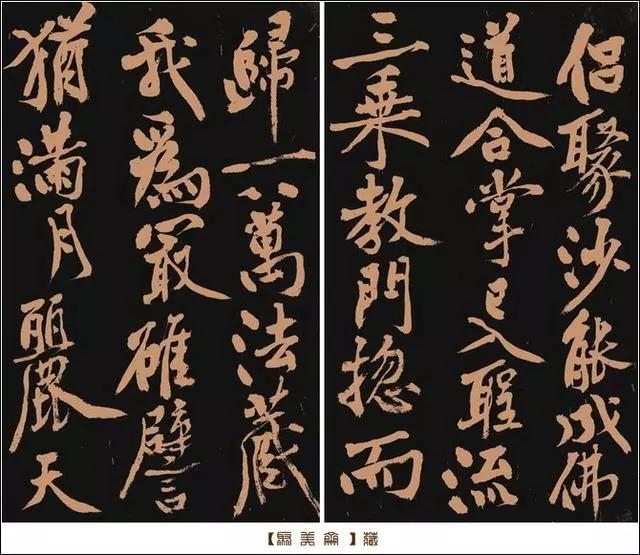 侣聚沙能成佛
道合掌已入聖流
三乗教門揔而
歸一八萬法藏
我爲冣雄譬
猶滿月麗天